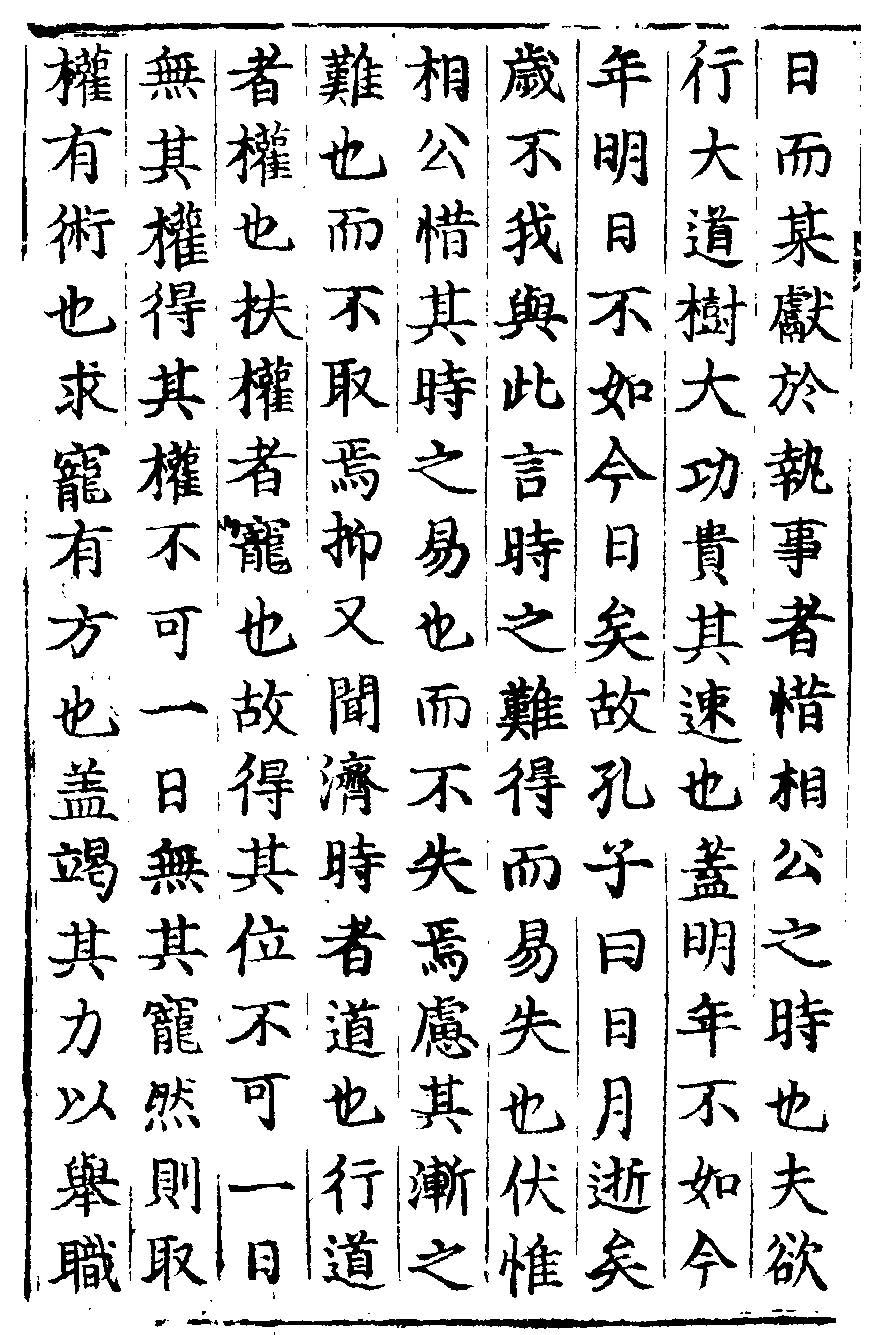 日而某獻於執事者惜相公之時也夫欲
行大道樹大功貴其速也蓋明年不如今
年明日不如今日矣故孔子曰日月逝矣
歲不我與此言時之難得而易失也伏惟
相公惜其時之易也而不失焉慮其漸之
難也而不取焉抑又聞濟時者道也行道
者權也扶權者寵也故得其位不可一日
無其權得其權不可一日無其寵然則取
權有術也求寵有方也盖竭其力以舉職